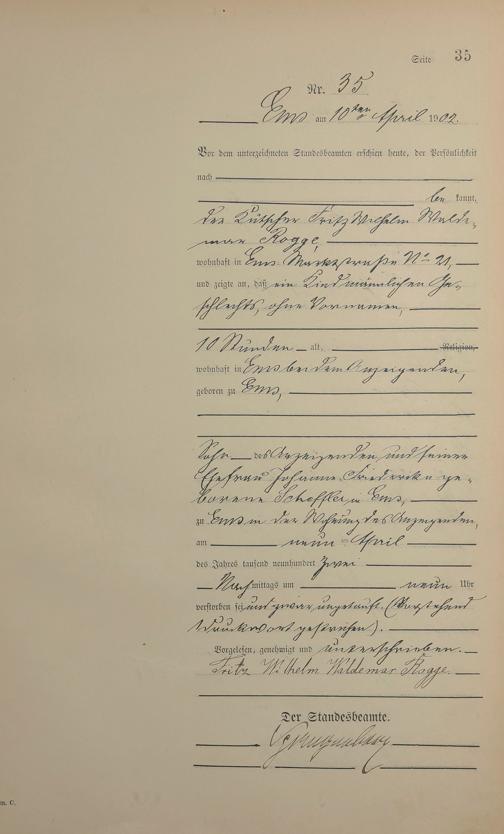 Seite 35
Nr. 35
Ems am 10ten April 1902.
Vor dem unterzeichneten Standesbeamten erschien heute, der Persönlichkeit
nach
be kannt,
der Kutscher Fritz Wilhelm Walde-
mar Rogge,
wohnhaft in Ems Marktstraße No 21,
und zeigte an, daß ein Kind männlichen Ge-
schlechts, ohne Vornamen,
10 Stunden alt, Religion,
wohnhaft in Ems bei dem Anzeigenden,
geboren zu Ems,
Sohn des Anzeigenden und seiner
Ehefrau Johanne Friederike ge-
borene in Ems,
zu Ems in der Wohnung des Anzeigenden,
am neun April
des Jahres tausend neunhundert zwei
Nachmittags um neun Uhr
verstorben sei und zwar ungetauft. (Vorstehend
Druckwort gestrichen).
Vorgelesen, genehmigt und unterschrieben.
Fritz Wilhelm Waldemar Rogge.
Der Standesbeamte.
m. C.